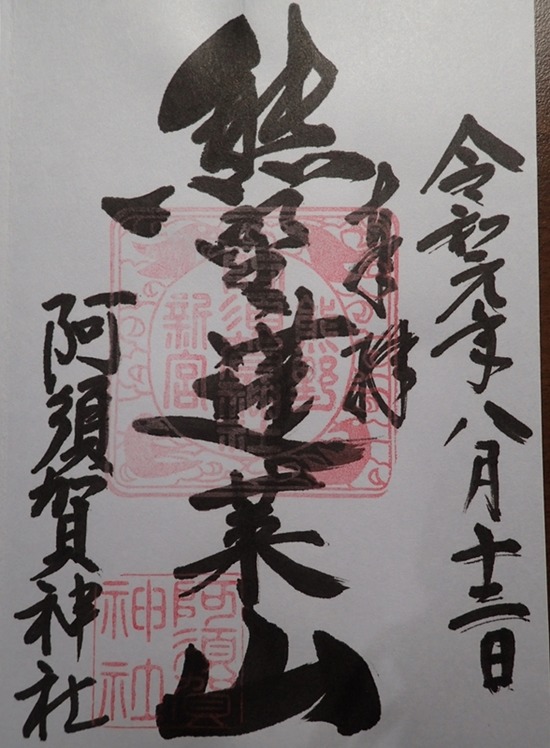 令和元年八月十三日
奉拝
熊野蓬莱山
阿須賀神社
熊野
新宮
阿須賀
神社